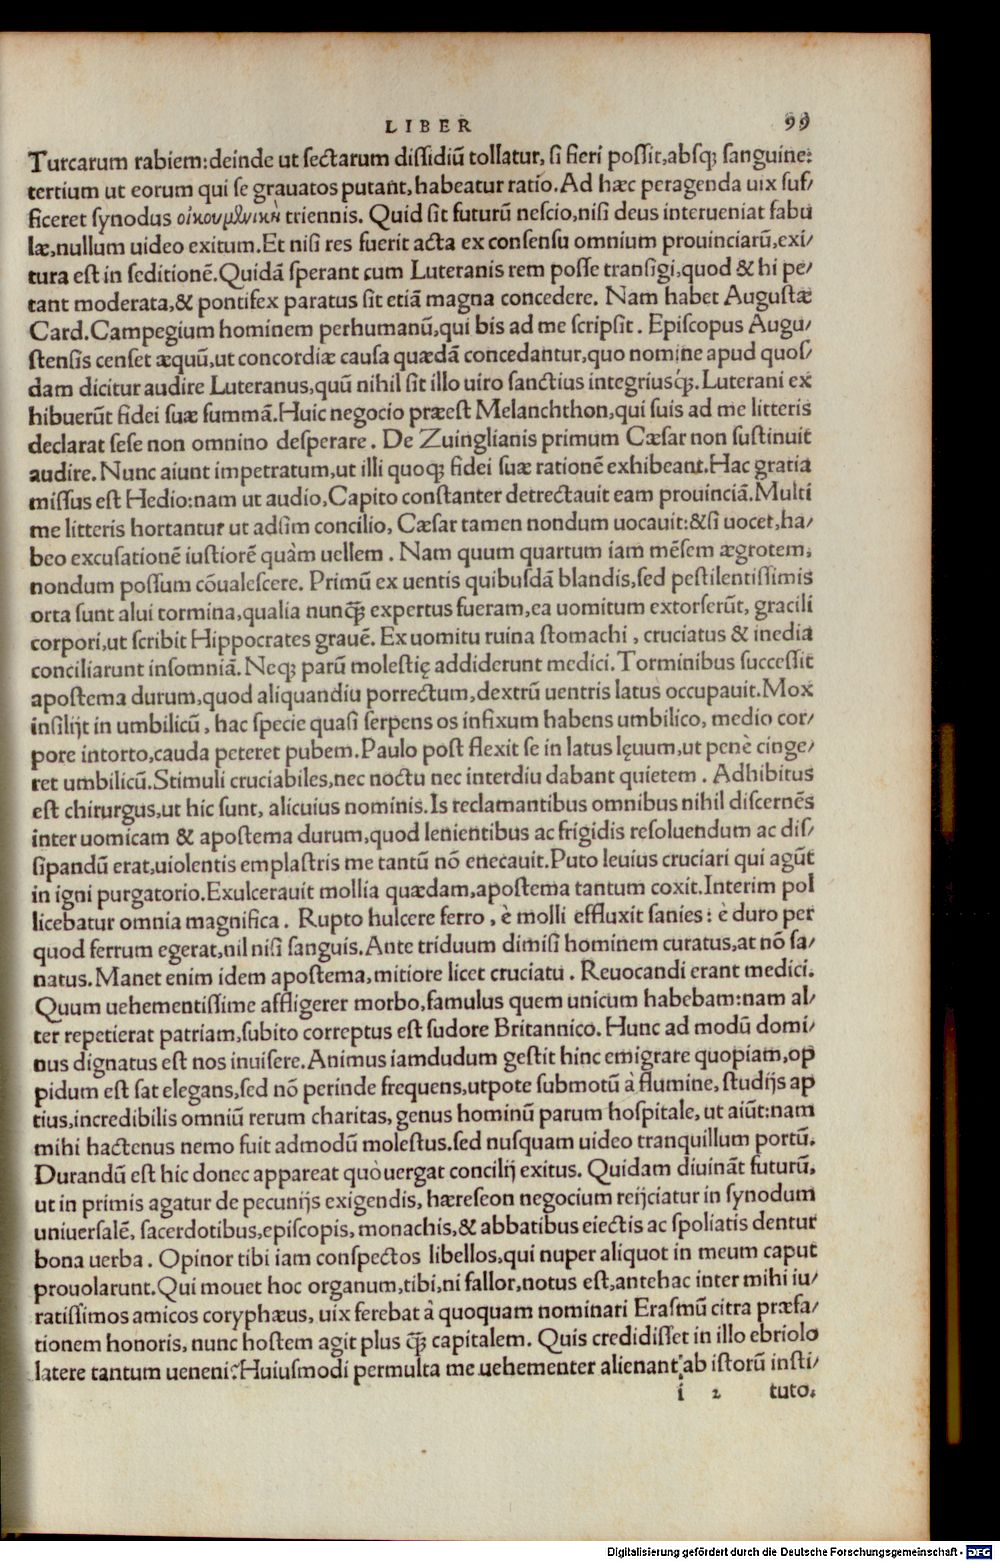 LIBER 99
Turcarum rabiem:deinde ut sectarum dissidiũ tollatur, si fieri possit,absq; sanguine:
tertium ut eorum qui se grauatos putant,habeatur ratio.Ad hæc peragenda uix suf/
ficeret synodus οἰκουμενικὴ triennis. Quid sit futurũ nescio,nisi deus interueniat fabu
læ,nullum uideo exitum.Et nisi res fuerit acta ex consensu omnium prouinciarũ,exi/
tura est in seditionẽ.Quidã sperant cum Luteranis rem posse transigi,quod & hi pe/
tant moderata,& pontifex paratus sit etiã magna concedere. Nam habet Augustæ
Card.Campegium hominem perhumanũ,qui bis ad me scripsit. Episcopus Augu/
stensis censet æquũ,ut concordiæ causa quædã concedantur,quo nomine apud quos/
dam dicitur audire Luteranus,quũ nihil sit illo uiro sanctius integriusq̃;.Luterani ex
hibuerũt fidei suæ summã.Huic negocio præest Melanchthon,qui suis ad me litteris
declarat sese non omnino desperare. De Zuinglianis primum Cæsar non sustinuit
audire.Nunc aiunt impetratum,ut illi quoq; fidei suæ rationẽ exhibeant.Hac gratia
missus est Hedio:nam ut audio,Capito constanter detrectauit eam prouinciã.Multi
me litteris hortantur ut adsim concilio, Cæsar tamen nondum uocauit:&si uocet,ha/
beo excusationẽ iustiorẽ quàm uellem. Nam quum quartum iam mẽsem ægrotem,
nondum possum cõualescere. Primũ ex uentis quibusdã blandis,sed pestilentissimis
orta sunt alui tormina,qualia nunq̃; expertus fueram,ea uomitum extorserũt, gracili
corpori,ut scribit Hippocrates grauẽ. Ex uomitu ruina stomachi, cruciatus & inedia
conciliarunt insomniã. Neq; parũ molestię addiderunt medici. Torminibus successit
apostema durum,quod aliquandiu porrectum,dextrũ uentris latus occupauit.Mox
insilijt in umbilicũ, hac specie quasi serpens os infixum habens umbilico, medio cor/
pore intorto,cauda peteret pubem.Paulo post flexit se in latus lęuum,ut penè cinge/
ret umbilicũ.Stimuli cruciabiles,nec noctu nec interdiu dabant quietem. Adhibitus
est chirurgus,ut hic sunt, alicuius nominis.Is reclamantibus omnibus nihil discernẽs
inter uomicam & apostema durum,quod lenientibus ac frigidis resoluendum ac dis/
sipandũ erat,uiolentis emplastris me tantũ nõ enecauit.Puto leuius cruciari qui agũt
in igni purgatorio.Exulcerauit mollia quædam,apostema tantum coxit.Interim pol
licebatur omnia magnifica. Rupto hulcere ferro, è molli effluxit sanies: è duro per
quod ferrum egerat,nil nisi sanguis.Ante triduum dimisi hominem curatus,at nõ sa/
natus.Manet enim idem apostema,mitiore licet cruciatu. Reuocandi erant medici.
Quum uehementissime affligerer morbo,famulus quem unicum habebam:nam al/
ter repetierat patriam,subito correptus est sudore Britannico. Hunc ad modũ domi/
nus dignatus est nos inuisere.Animus iamdudum gestit hinc emigrare quopiam,op
pidum est sat elegans,sed nõ perinde frequens,utpote submotũ à flumine, studijs ap
tius,incredibilis omniũ rerum charitas, genus hominũ parum hospitale, ut aiũt:nam
mihi hactenus nemo fuit admodũ molestus.sed nusquam uideo tranquillum portũ.
Durandũ est hic donec appareat quò uergat concilij exitus. Quidam diuinãt futurũ,
ut in primis agatur de pecunijs exigendis, hæreseon negocium reijciatur in synodum
uniuersalẽ, sacerdotibus,episcopis, monachis,& abbatibus eiectis ac spoliatis dentur
bona uerba. Opinor tibi iam conspectos libellos,qui nuper aliquot in meum caput
prouolarunt.Qui mouet hoc organum,tibi,ni fallor,notus est,antehac inter mihi iu/
ratissimos amicos coryphæus, uix ferebat à quoquam nominari Erasmũ citra præfa/
tionem honoris, nunc hostem agit plus q̃; capitalem. Quis credidisset in illo ebriolo
latere tantum ueneni?Huiusmodi permulta me uehementer alienant ab istorũ insti/
i 2 tuto.
Digitalisierung gefördert durch die Deutsche Forschungsgemeinschaft - DFG